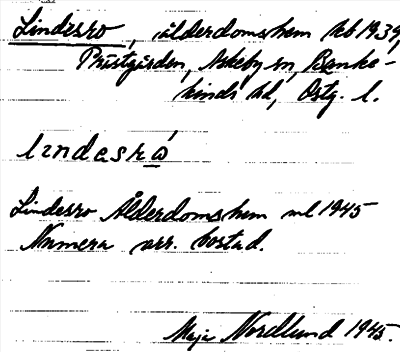 Lindesro, ålderdomshem neb 1939,
Prästgården, Askeby sn, Banke-
kinds hd, Östg. l.
lındasrò
Lindesro Ålderdomshem ml 1945
Numera arr. bostad.
Maja Nordlund 1945.